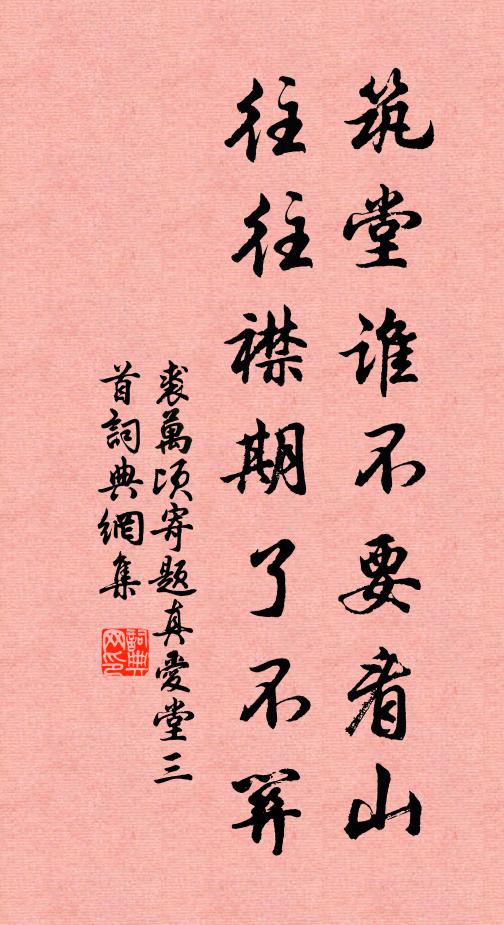 筑堂誰不要看山
往往襟期了不關
裘萬頃寄題真愛堂三
首詞典網集
詞典
网印